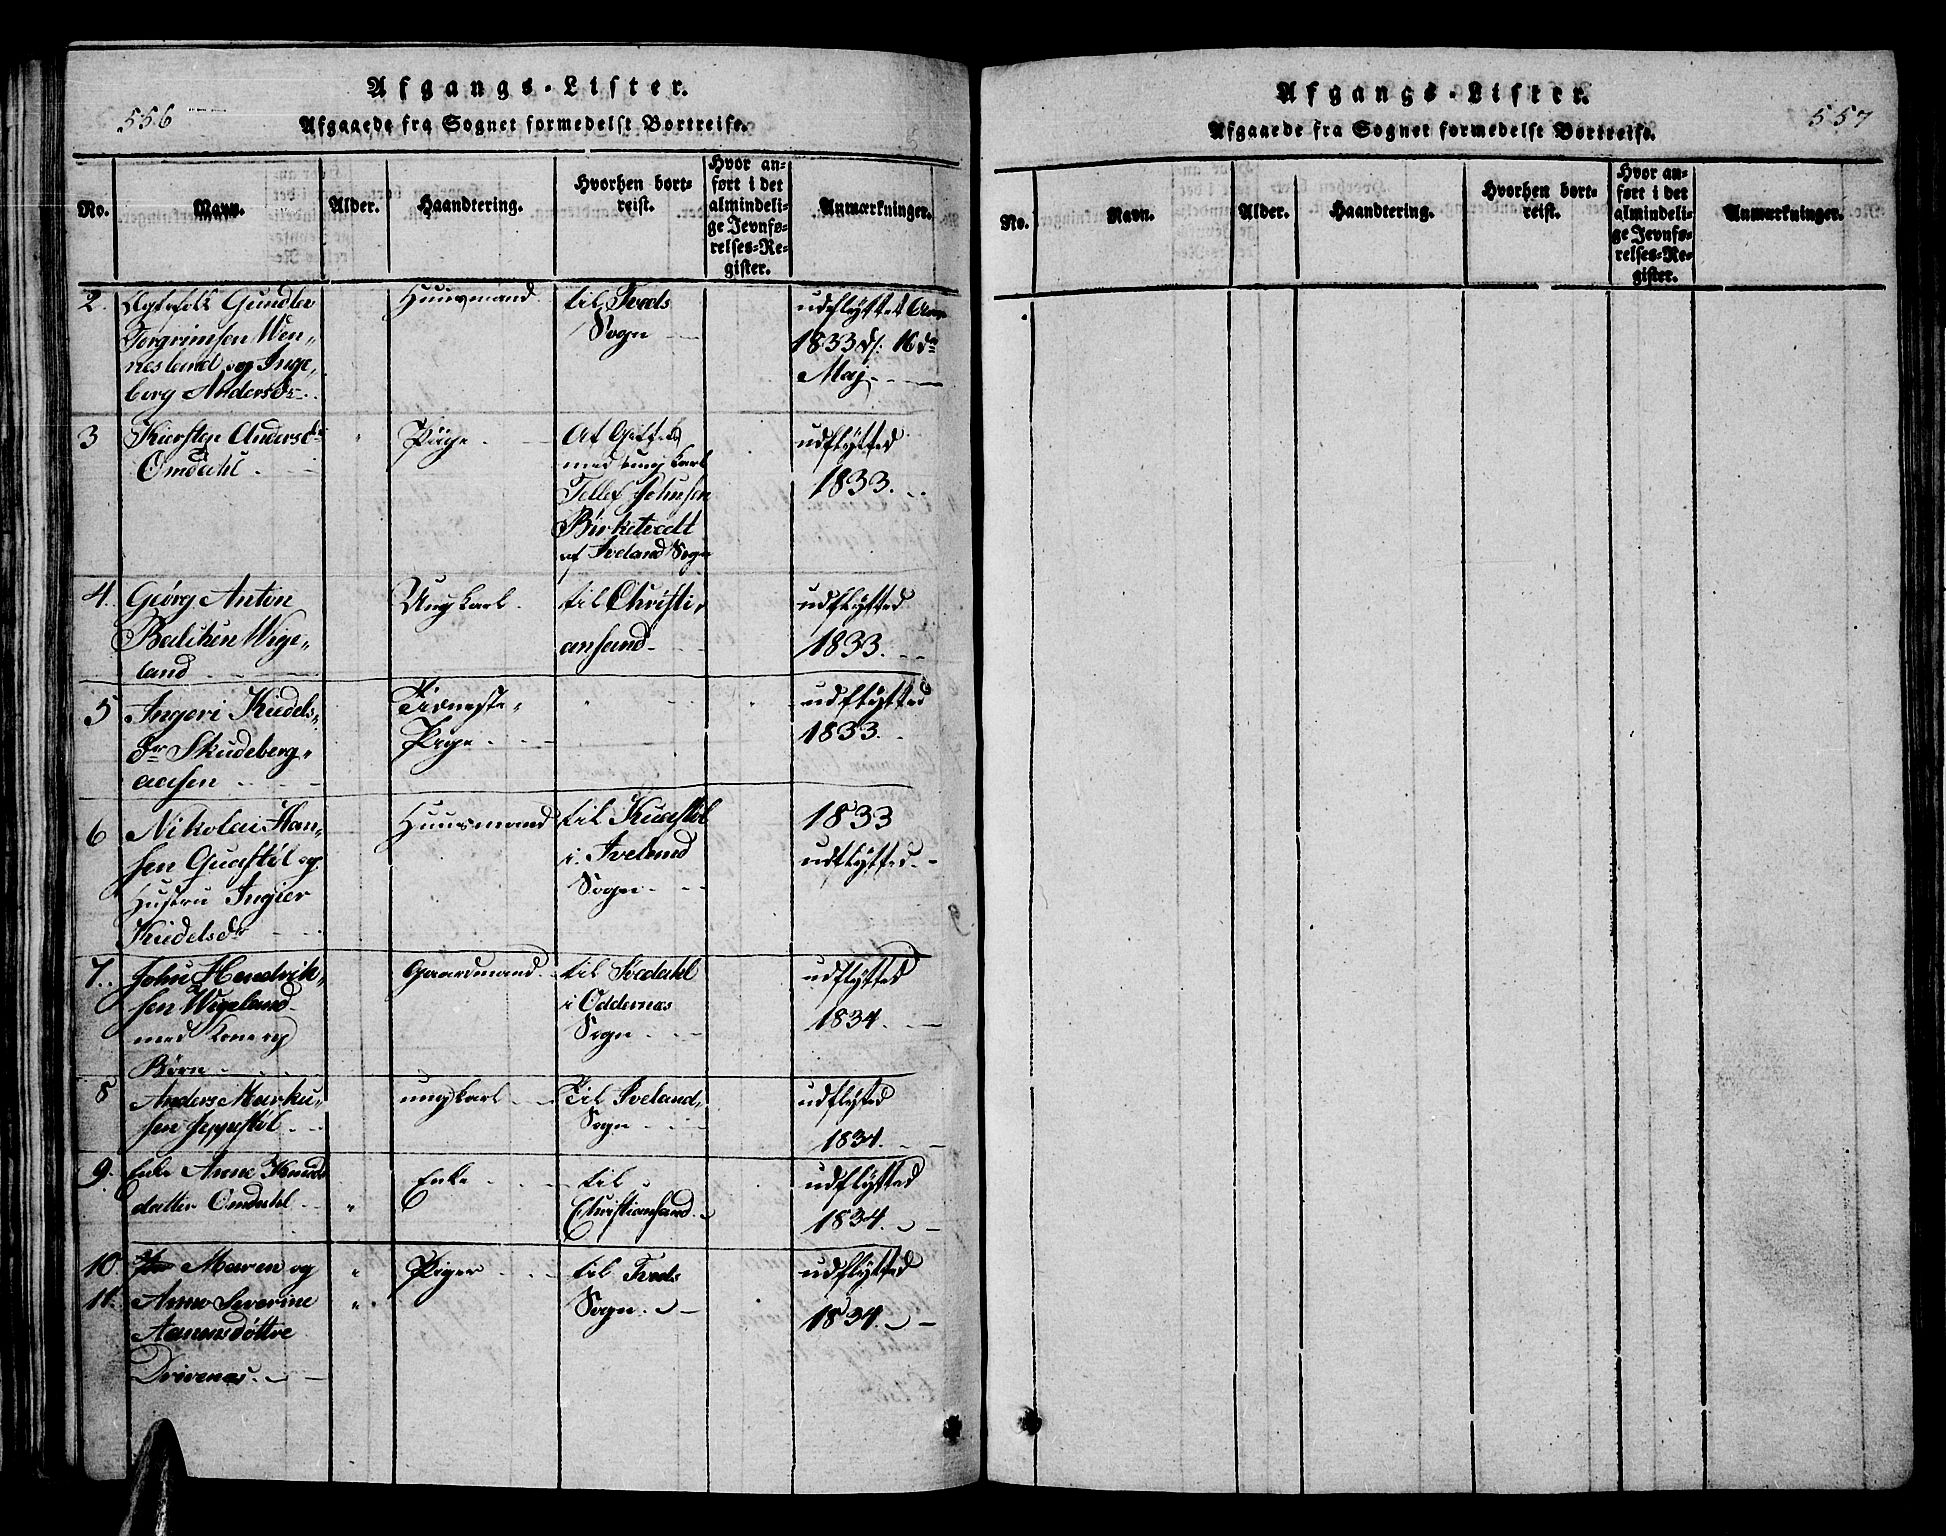 Afgangs-Lister.
556
Afgaaede fra Sognet formedelst Bortreise.
No.
Navn.
Alder.
Haandtering.
Hvorhen bort-
reist.
Hvor an-
ført i det
almindeli-
ge Jevnfø-
relses-Re-
gister.
Anmærkninger.
2.
Ægtefolk Gundler
Torgrimsen Wen-
nesland og Inge-
borg Andersdr
Huusmand
til Tveds
Sogn
udflyttet
1833 d: 16de
Maj
3
Kiersten Andersdr
Omdahl
"
Pige
med ungkarl
Tellef Johnsen
Birketvedt
af Iveland Sogn
udflytted
1833.
4.
Georg Anton
Balchen Wige-
land
Ungkarl.
til Christi-
ansand
udflytted
1833.
5
Ingeri Kiedels-
dr Skudeberg-
aasen
Tieneste-
Pige
"
"
udflytted
1833.
6
Nikolai Han-
sen Quastøl og
Hustru Ingier
Kiedelsdr
Huusmand
til Kuastøl
i Iveland
Sogn
1833
udflytted
7.
John Hendrik-
sen Wigeland
med Kone og
Børn
Gaardmand
til Sødahl
i Oddernæs
Sogn
udflytted
1834.
8
Anders Marku-
sen Seppestøl
ungkarl
til Iveland
Sogn
udflytted
1834.
9.
Enke Anne Knuds
datter Omdahl
"
Enke
til
Christiansand.
udflytted
1834.
10
Maren og
"
Piger
til Tveds
udflytted
11.
Anne Severine
"
Sogn.
1834.
Aanensdøttre
Drivenæs.
Afgangs-Lister.
557
Afgaaede fra Sognet formedelst Bortreise.
No.
Navn.
Alder.
Haandtering.
Hvorhen bort-
reist.
Hvor an-
ført i det
almindeli-
ge Jevnfø-
relses-Re-
gister.
Anmærkninger.